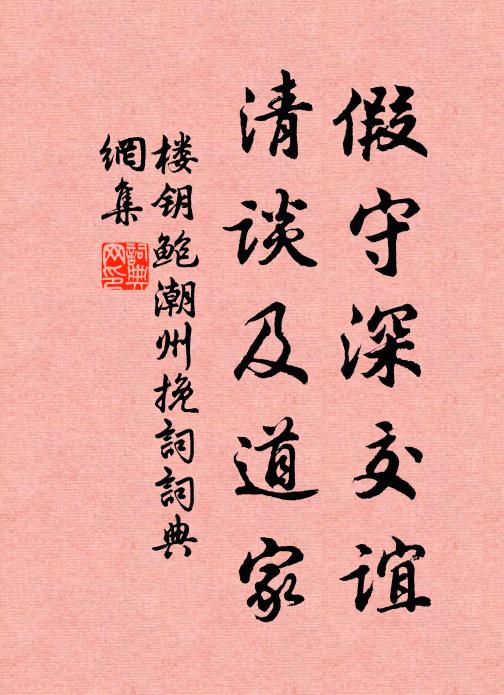 假守深交谊
清谈及道家
楼钥鲍潮州挽詞詞典
網集
詞典网印